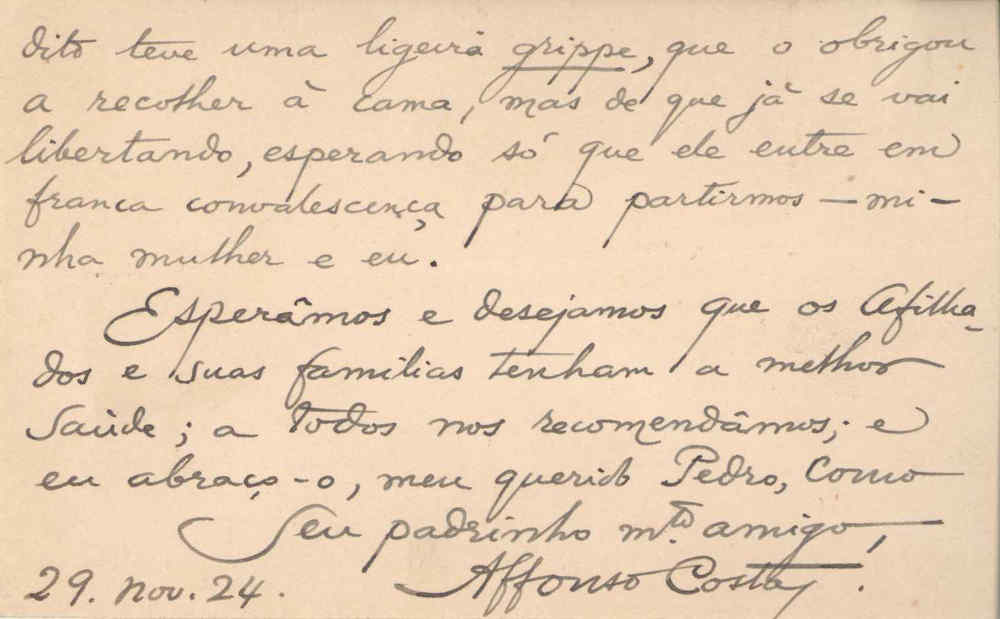 dito teve uma ligeira grippe, que o obrigou
a recolher à cama, mas de que já se vai
libertando, esperando só que ele entre em
franca convalescença para partirmos — mi-
nha mulher e eu.
Esperâmos e desejamos que os Afilha-
dos e suas familias tenham a melhor
saùde; a todos nos recomendâmos; e
eu abraço-o, meu querido Pedro, como
Seu padrinho m.to amigo,
Affonso Costa.
29. Nov. 24.